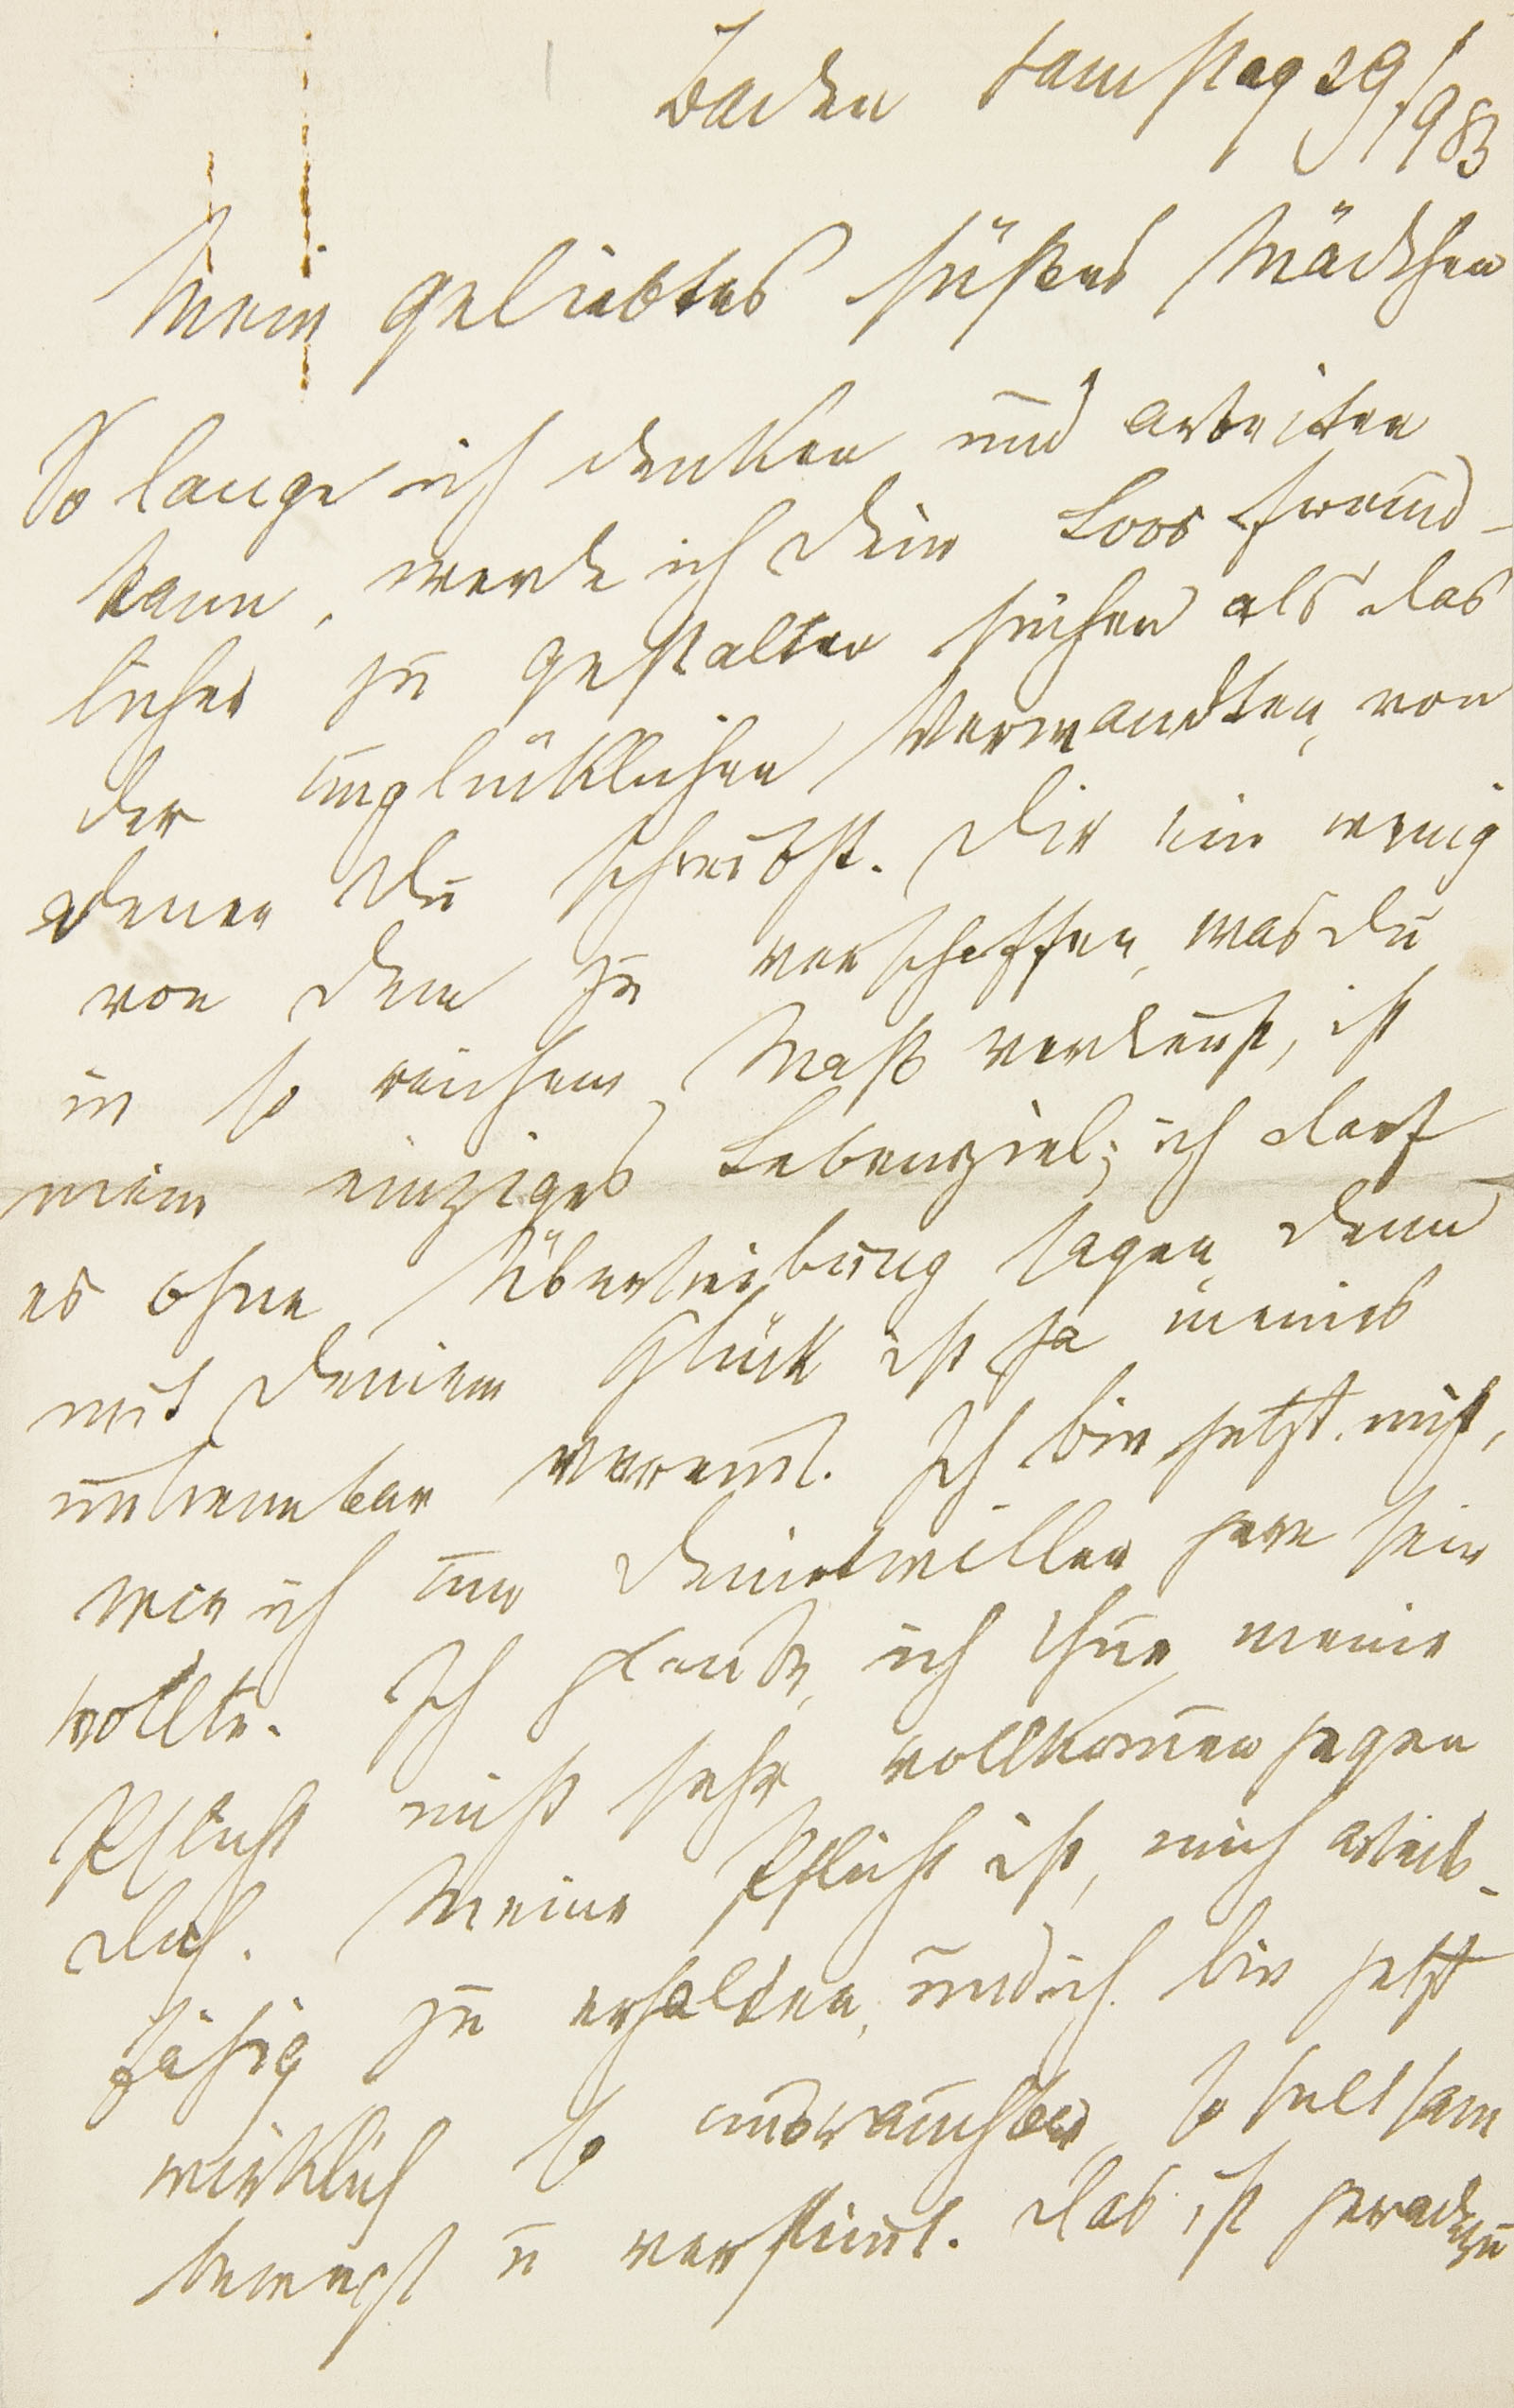 Baden Samstag 29/9 83
Mein geliebtes süßes Mädchen
So lange ich denken und arbeiten
kann, werde ich Dein Loos freund-
licher zu gestalten suchen als das
der unglücklichen Verwandten, von
denen Du schreibst. Dir ein wenig
von dem zu verschaffen, was Du
in so reichem Maß verdienst, ist
mein einziges Lebensziel; ich darf
es ohne Übertreibung sagen, denn
mit Deinem Glück ist ja meines
untrennbar vereint. Ich bin jetzt nicht,
wie ich um Deinetwillen gern sein
wollte. Ich glaube, ich thue meine
Pflicht nicht sehr vollkomen gegen
Dich. Meine Pflicht ist, mich arbeits-
fähig zu erhalten, und ich bin jetzt
wirklich so unbrauchbar, so seltsam
bewegt u verstimt. Das ist geradezu